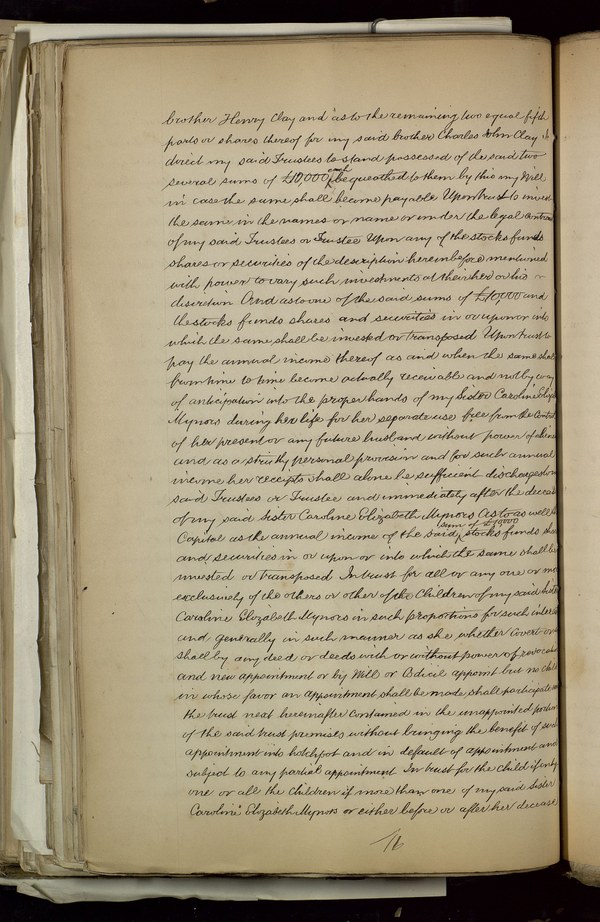 brother Henry Clay and as to the remaining two equal fifth
parts or shares thereof for my said brother Charles John Clay I
direct my said Trustees to stand possessed of the said two
several sums of £10,000 each bequeathed to them by this my Will
in case the same shall become payable Upon trust to invest
the same in the names or name or under the legal control
of my said Trustees or Trustee Upon any of the stocks funds
shares or securities of the description hereinbefore mentioned
with power to vary such investments at their her or his
discretion And as to one of the said sums of £10,000 and
the stocks funds shares and securities in or upon or into
which the same shall be invested or transposed Upon trust to
pay the annual income thereof as and when the same shall
from time to time become actually receivable and not by way
of anticipation into the proper hands of my Sister Caroline Eliza
Mynors during her life for her separate use free from the Control
of her present or any future husband without power of alien
and as a strictly personal provision and for such annual
income her receipts shall alone be sufficient discharges to m
said Trustees or Trustee and immediately after the deceas
of my said Sister Caroline Elizabeth Mynors As to as well t
Capital as the annual income of the said sum of £10000 stocks funds sha
and securities in or upon or into which the same shall be
invested or transposed In trust for all or any one or mo
exclusively of the others or other of the Children of my said Siste
Caroline Elizabeth Mynors in such proportions for such interes
and generally in such manner as she whether Covert or
shall by any deed or deeds with or without power of revocatio
and new appointment or by Will or Codicil appoint but no chil
in whose favor an appointment shall be made shall participate in
the trust next hereinafter Contained in the unappointed portion
of the said trust premises without bringing the benefit of such
appointment into hotchpot and in default of appointment and
subject to any partial appointment In trust for the child if only
one or all the Children if more than one of my said Sister
Caroline Elizabeth Mynors or either before or after her decease